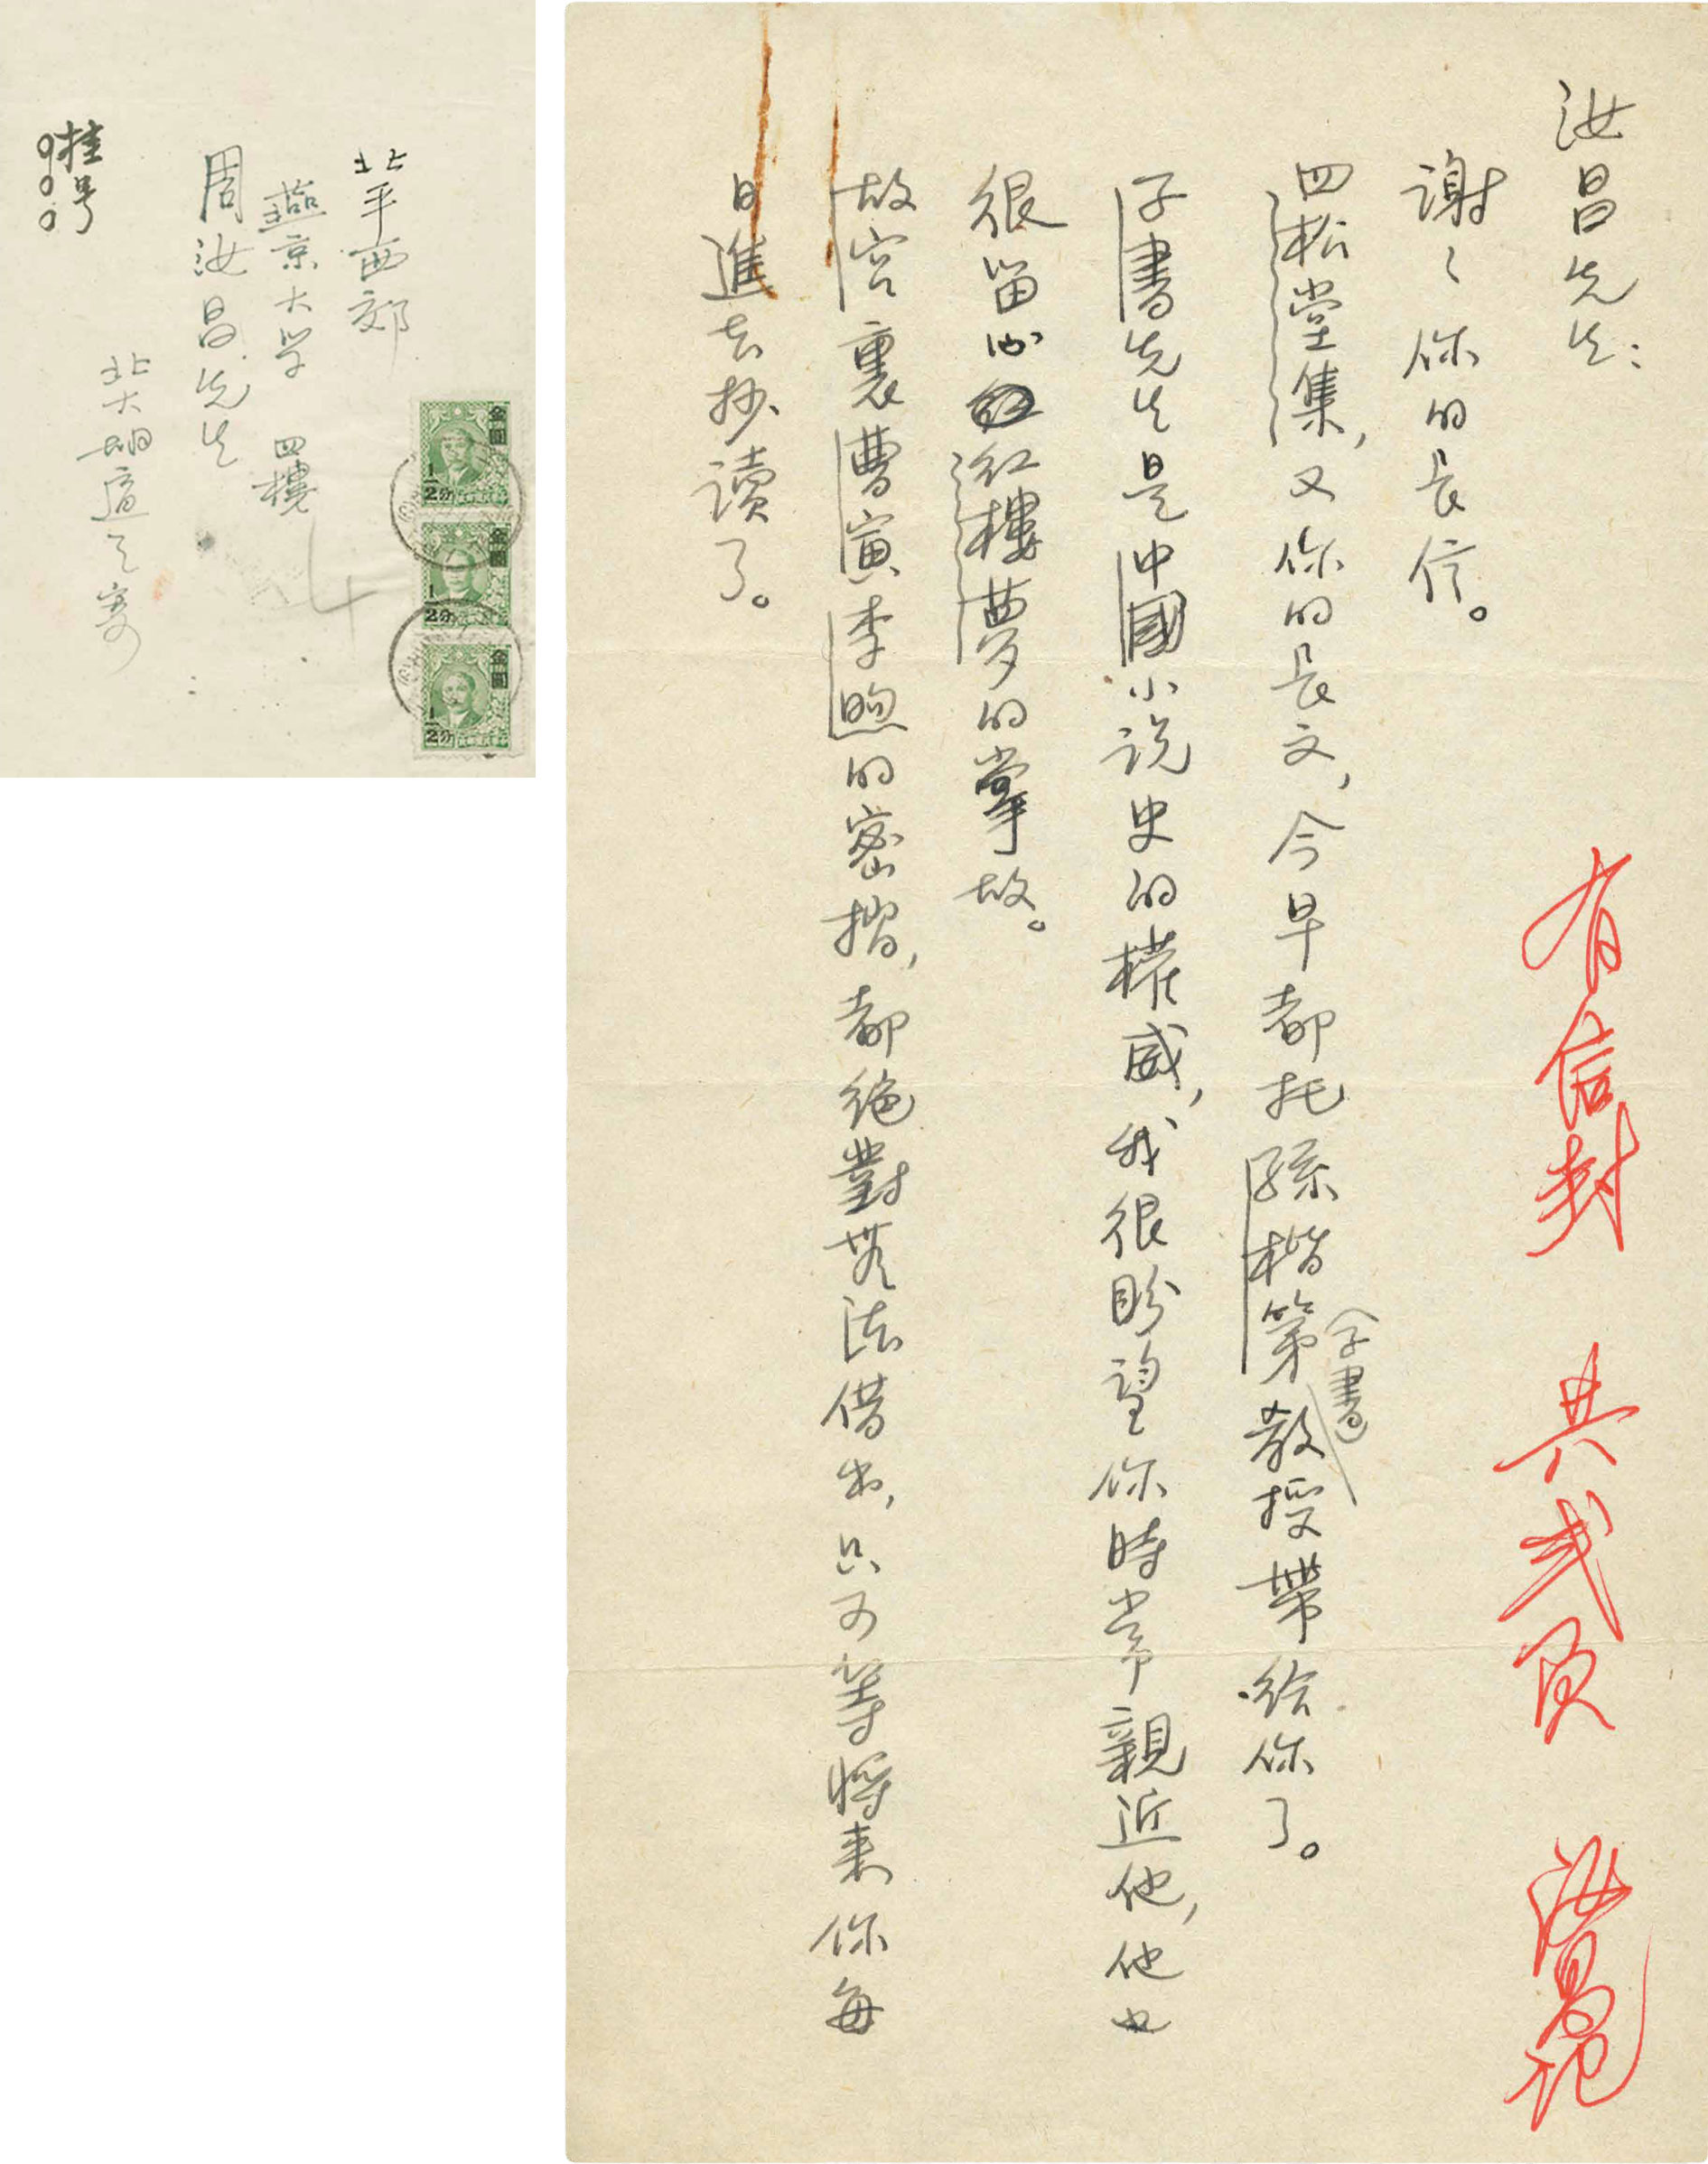 北平西郊
燕京大学 四樓
周汝昌先生
北大 胡適之寄
挂号
金圓
1/2分
金圓
1/2分
金圓
1/2分
汝昌先生：
謝〻你的長信。
四松堂集，又你的長文，今早都托孫楷第教授帶给你了。
（子書）
子書先生是中國小说史的權威，我很盼望你時常親近他，他也
很留心红樓夢的掌故。
故宫裏曹寅李煦的密摺，都绝對無法借出，只可等將来你每
日進去抄讀了。
有信封 共弍页 汝昌记